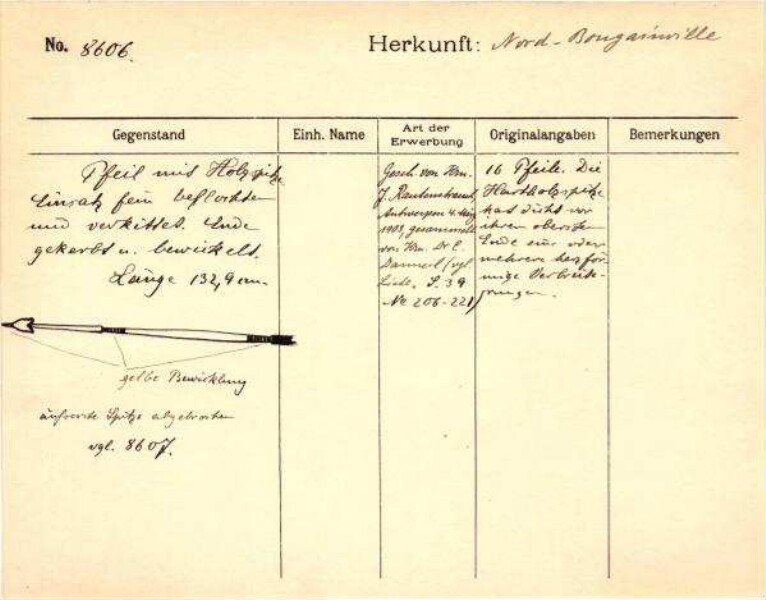 No. 8606.
Herkunft: Nord-Bougainville
Gegenstand
Einh. Name
Art der Erwerbung
Originalangaben
Bemerkungen
Pfeil mit Holzspitze
Einsatz fein beflochten
und verkittet. Ende
gekerbt u. bewickelt.
Länge 132,9 cm.
gelbe Bewicklung
äusserste Spitze abgebrochen
vgl. 8607.
Gesch. von Hrn.
J. Rautenstrauch,
Antwerpen 4. März
1903, gesammelt
von Hrn. Dr E.
(vgl.
Liste. S. 39
No 206-221)
16 Pfeile. Die
Hartholzspitze
hat dicht vor
ihrem obersten
Ende eine oder
mehrere herzför-
mige Verbreite-
rungen.